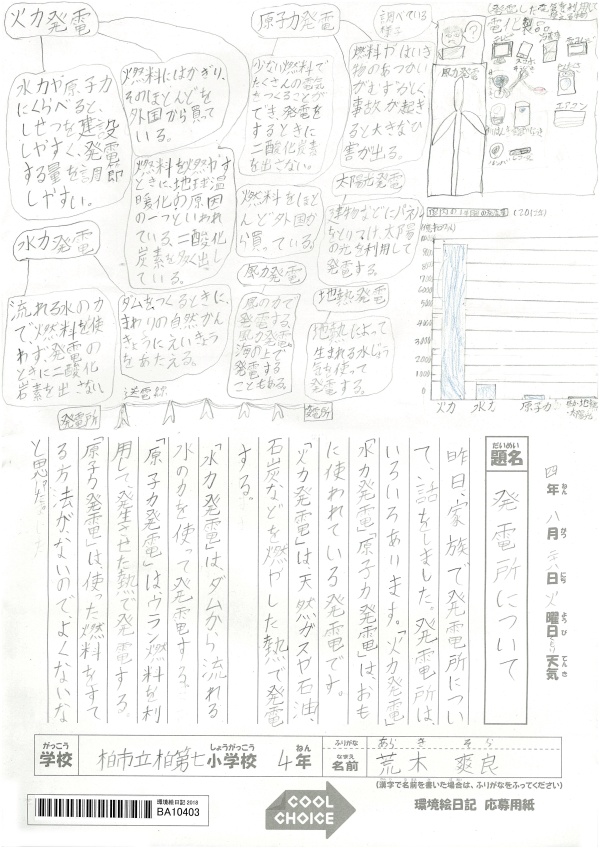 火力発電
水力や原子力
にくらべると、
しせつを建設
しやすく、発電
する量を調節
しやすい。
燃料にはかぎり、
そのほとんどを
外国から買って
いる。
燃料を燃やす
ときに、地球温
暖化の原因
の一つといわれ
ている、二酸化
炭素を多く出し
ている。
原子力発電
少ない燃料で
たくさんの電気
をつくることが
でき、発電を
するときに
二酸化炭素
を出さない。
燃料やはいき
物のあつかい
がむずかしく、
事故が起き
ると大きなひ
害が出る。
燃料をほと
んど外国か
ら買っている。
調べている
様子
電化製品
風力発電
太陽光発電
建物などにパネル
をとりつけ、太陽
の光を利用して
発電する。
水力発電
流れる水の力
で、燃料を使
わず、発電の
ときに二酸化
炭素を出さない
ダムをつくるときに、
まわりの自然かん
きょうにえいきょう
をあたえる。
風力発電
風の力で
発電する。
風力発電
海の上で
発電する
こともある。
地熱発電
地熱によって
生まれる水じょう
気を使って
発電する。
エアコン
火力
水力
原子力
送電線
発電所
題名
だいめい
発電所について
四年八月二十八日火曜日
天気
昨日、家族で発電所につい
て、話をしました。発電所は、
いろいろあります。「火力発電」
「水力発電」「原子力発電」は、おも
に使われている発電です。
「火力発電」は、天然ガスや石油、
石炭などを燃やした熱で発電
する。
「水力発電」は、ダムから流れる
水の力を使って発電する。
「原子力発電」は、ウラン燃料を利
用して、発生させた熱で発電する。
「原子力発電」は使った燃料をすて
る方法がないのでよくないな
と思った。
がっこう
学校
柏市立柏第七小学校 4年
しょうがっこう
ねん
ふりがな
あらき そら
なまえ
名前
荒木 爽良
(漢字で名前を書いた場合は、ふりがなをふってください)
環境絵日記 2018
BA10403
COOL
CHOICE
環境絵日記 応募用紙